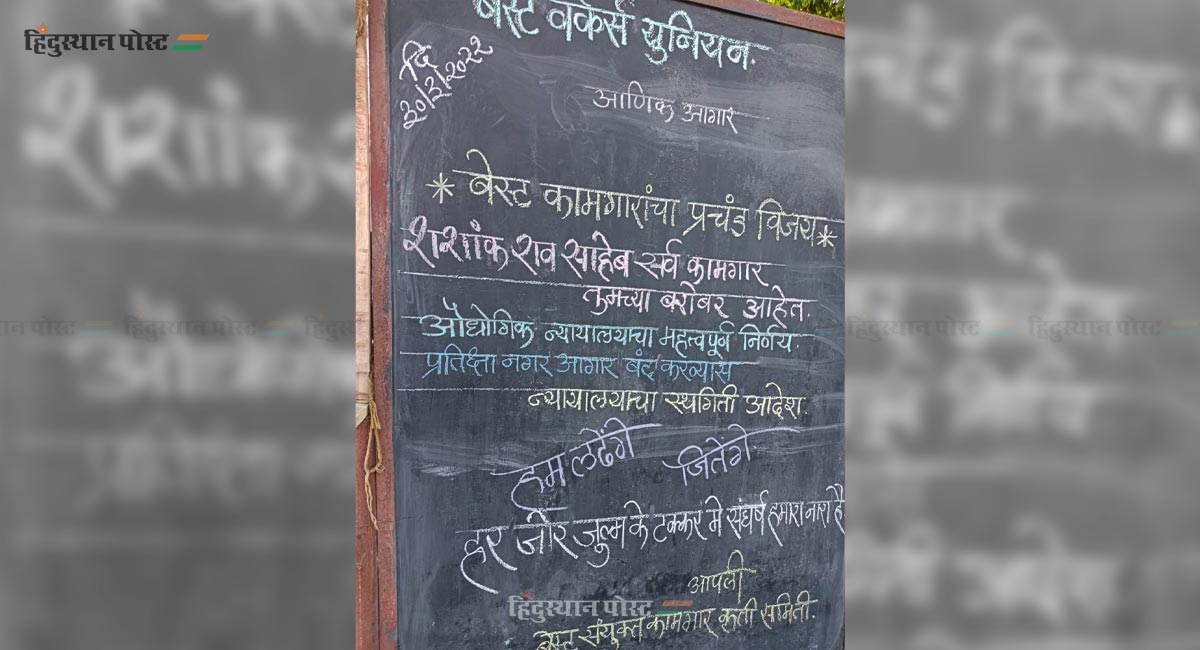 हिंदुस्थान पोस्ट
बेस्ट वर्कर्स युनियन.
दि
२०/३/२०२२
आणिक आगार
* बेस्ट कामगारांचा प्रचंड विजय *
शशांक राव साहेब सर्व कामगार
तुमच्या बरोबर आहेत.
औद्योगिक न्यायालयाचा महत्वपूर्ण निर्णय.
प्रतिक्षा नगर आगार बंद करण्यास
न्यायालयाचा स्थगिती आदेश.
हम लढेंगे जितेंगे
हर जोर जुल्म के टक्कर मे संघर्ष हमारा नारा है
आपली
हिंदुस्थान पोस्ट
बेस्ट संयुक्त कामगार कृती समिती.